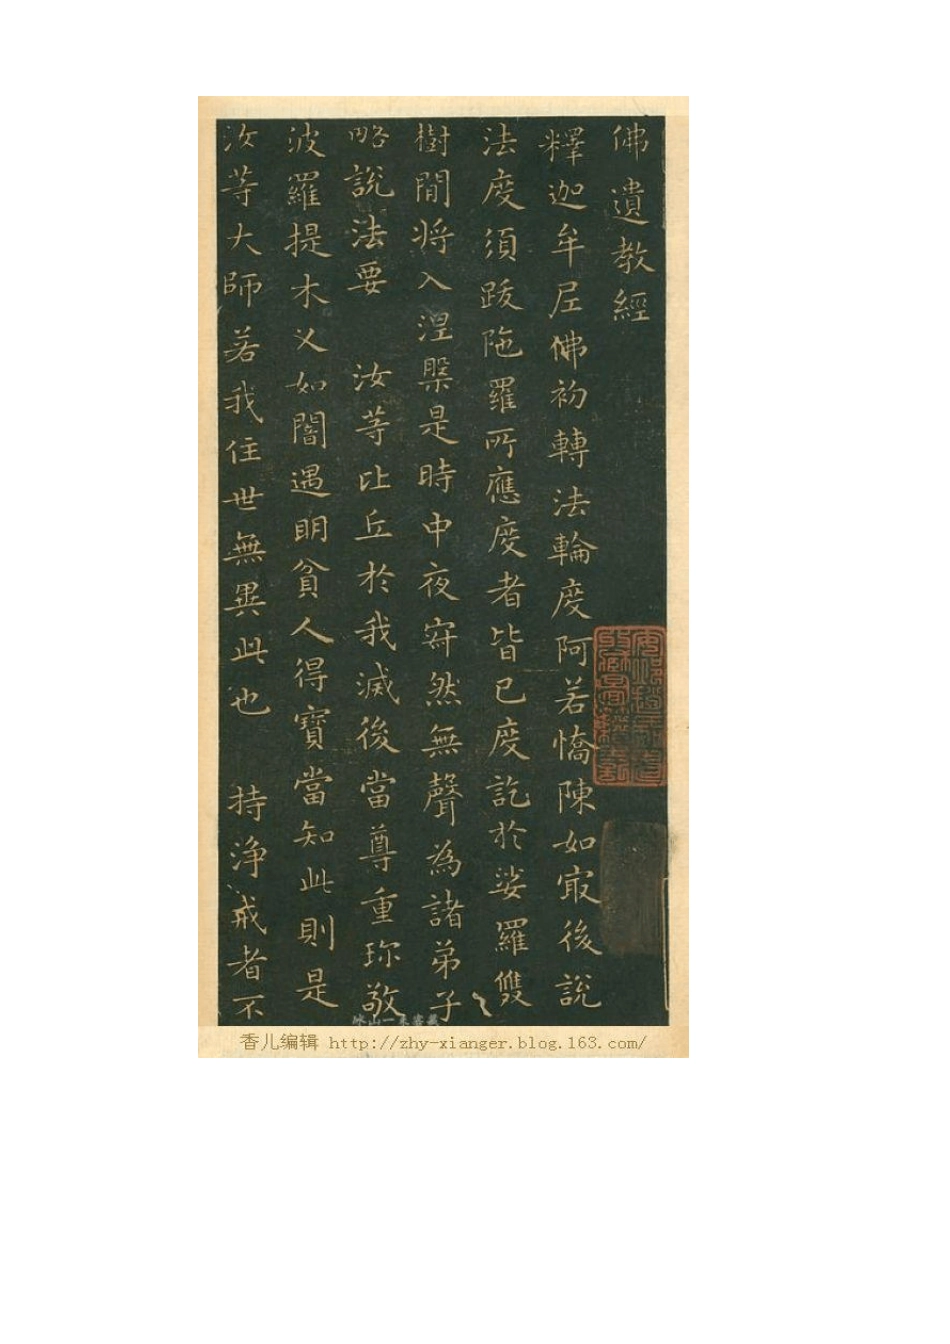 佛遺教經
釋迦牟尼佛初轉法輪度阿若憍陳如冣後說
法度須跋陁羅所應度者皆已度訖於娑羅雙
樹間將入涅槃是時中夜寂然無聲為諸弟子
略說法要 汝等比丘於我滅後當尊重珎敬
波羅提木叉如闇遇明貧人得寶當知此則是
汝等大師若我住世無異此也 持淨戒者不
香儿编辑 http://zhy-xianger.blog.163.com/